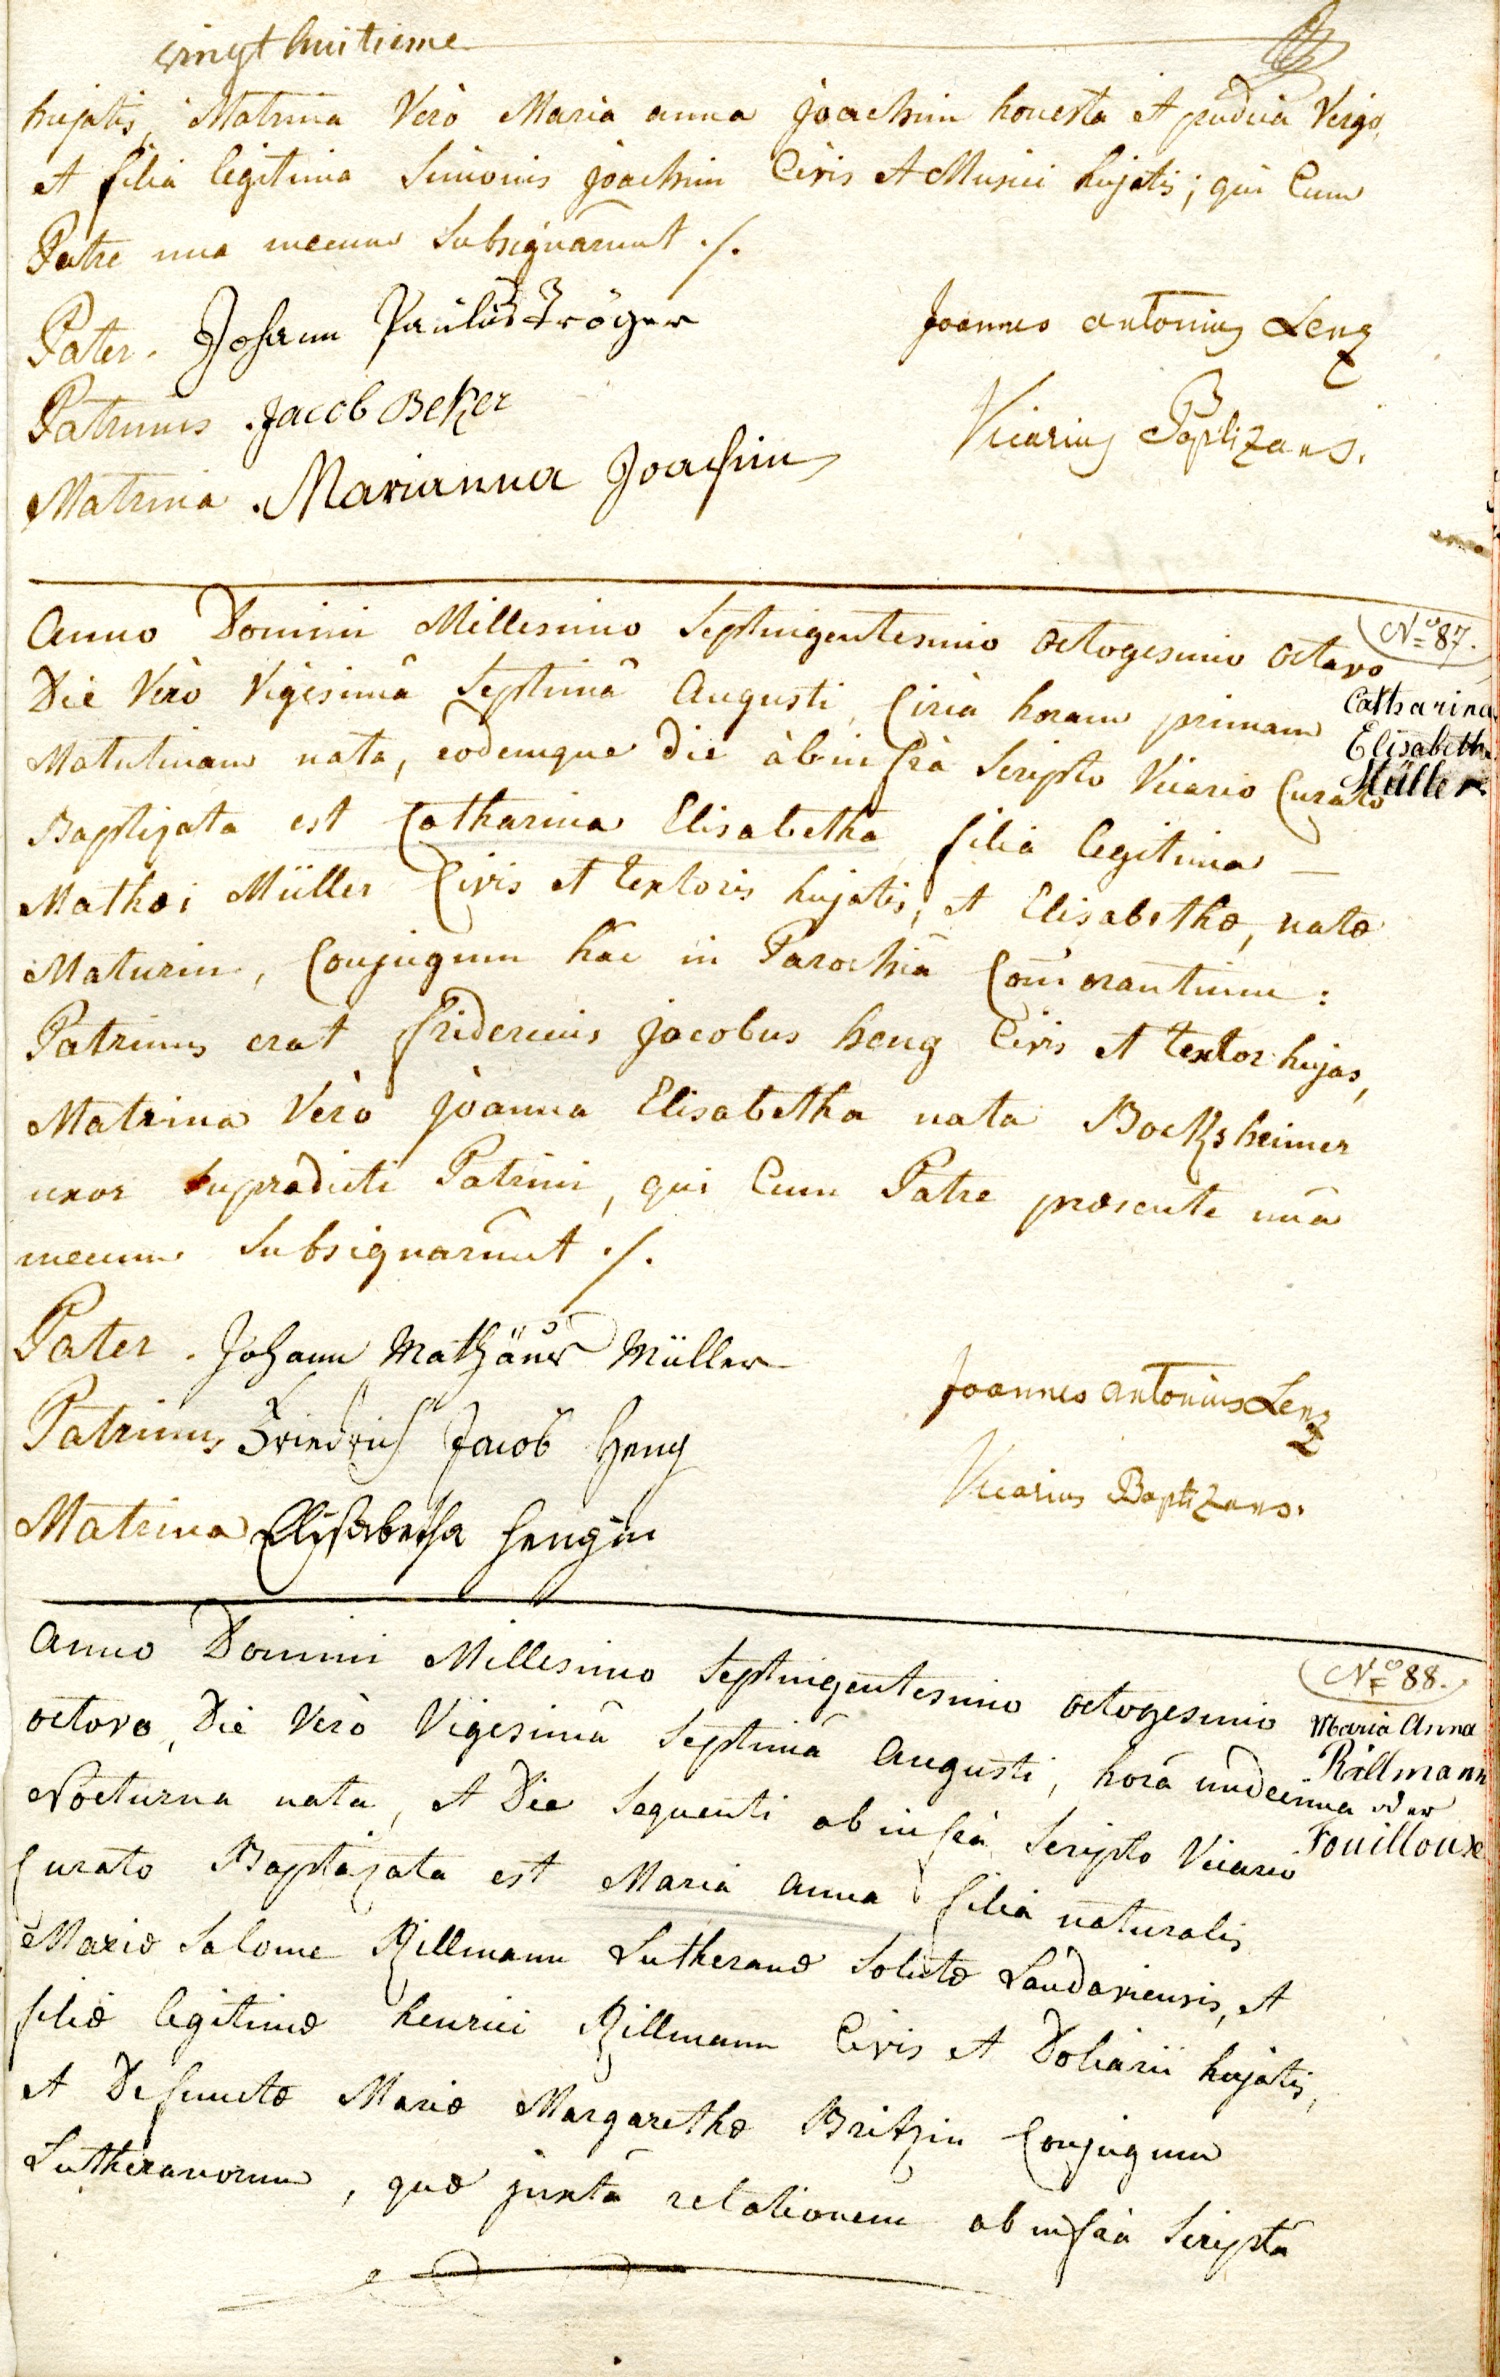 vingt huitieme
hujatis, Matrina Verò Maria anna joachim honesta et pudica Virgo,
et filia legitima Simonis joachim Civis et Musici hujatis; qui Cum
Patre una mecum Subsignarunt ./.
Pater. Johann Paulus Tröger
Joannes antonius Lenz
Patrinus. Jacob Beker
Vicarius Baptizans.
Matrina. Marianna Joachim
Anno Domini Millesimo Septingentesimo octogesimo octavo
No 87.
Die Verò Vigesimâ Septimâ Augusti, Circa horam primam
Catharina
Elisabetha
Müller
Matutinam nata, eodemque die ab infrà Scripto Vicario Curato
Baptizata est Catharina Elisabetha filia legitima —
Mathæi Müller Civis et textoris hujatis, et Elisabethæ, natæ
Maturin, Conjugum hâc in Parochiâ Com̄orantium:
Patrinus erat fridericus jacobus heng Civis et textor hujas,
Matrina Verò joanna Elisabetha nata Bocksheimer
uxor supradicti Patrini, qui Cum Patre præsente unâ
mecum Subsignarunt ./.
Pater. Johann Mathäus Müller
Joannes antonius Lenz
Patrinus Friedrich Jacob Heng
Vicarius Baptizans.
Matrina Elisabetha Hengin
Anno Domini Millesimo Septingentesimo octogesimo
No 88.
Maria Anna
Rillmann
oder
Fouilloux
octavo, Die Verò Vigesimâ Septimâ Augusti, horâ undecima
Nocturna nata, et Die Sequenti ab infrà Scripto Vicario
Curato Baptizata est Maria anna filia naturalis
Mariæ Salome Rillmann Lutheranæ Solutæ Landaviensis, et
filiæ legitimæ henrici Rillmann Civis et Doliarii hujatis,
et Defunctæ Mariæ Margarethæ Britzin Conjugum
Lutheranorum, quæ juxtâ relationem ab infrà Scriptâ